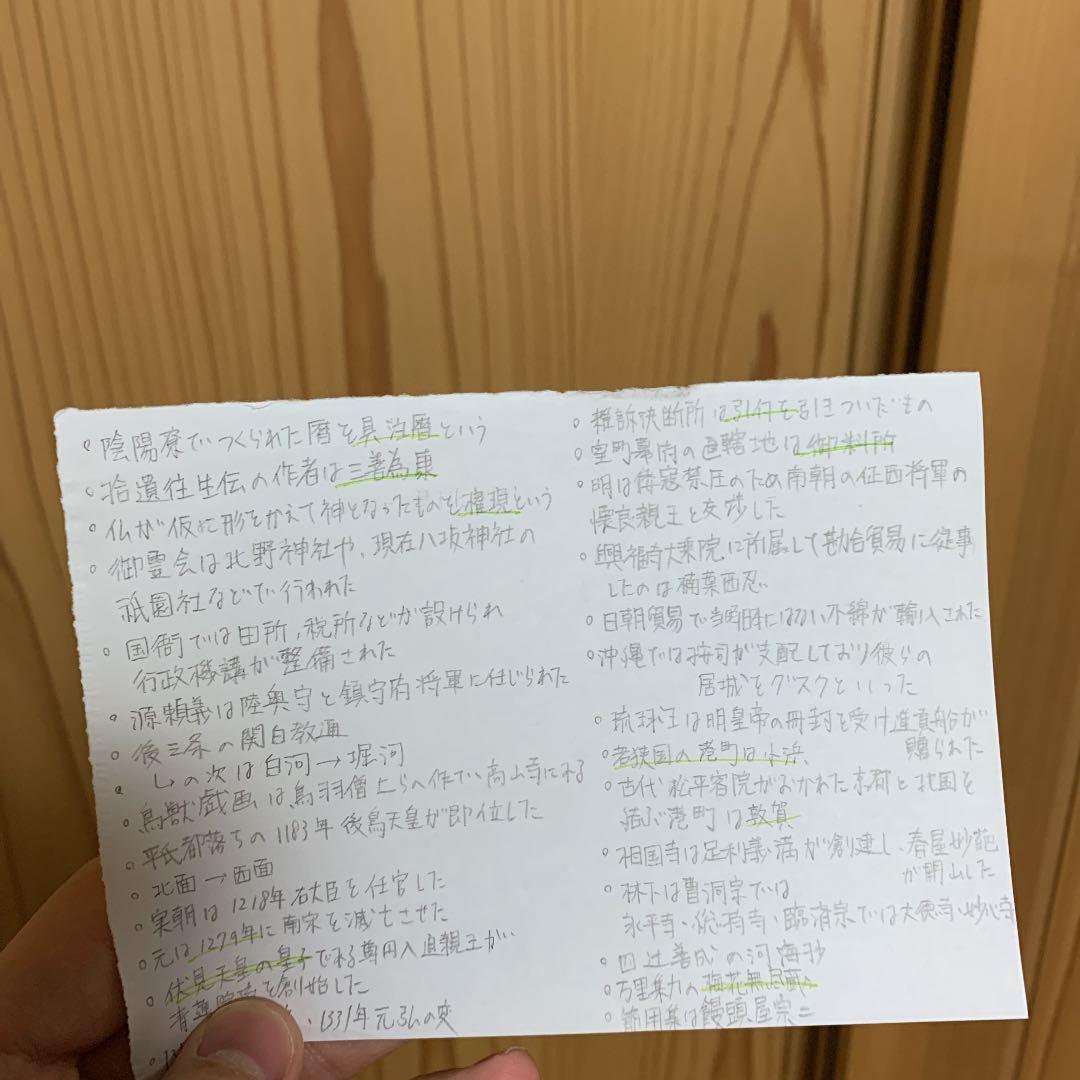 陰陽寮でつくられた暦を具注暦という
拾遺往生伝の作者は三善為康
仏が仮に形をかえて神となったものを権現という
御霊会は北野神社や、現在八坂神社の
祇園社などで行われた
国衙では田所,税所などが設けられ
行政機講が整備された
源頼義は陸奥守と鎮守府将軍に任じられた
後三条の関白教通
の次は白河→堀河
鳥獣戯画は鳥羽僧上らへ作で高山寺にある
平氏都落ちの1183年後鳥天皇が即位した
北面→西面
実朝は1218年右大臣を任官した
元は1279年に南宋を滅亡させた
伏見天皇の皇子である尊円入道親王が
青蓮院流を創始した
・1331年元弘の変
雑訴決断所は引付を引きついだもの
室町幕府の直轄地は御料所
明は倭寇禁圧のため南朝の征西将軍の
懐良親王と交渉した
興福寺大乗院に所属して勘合貿易に従事
したのは楠葉西忍
日朝貿易で当時日本にはない木綿が輸入された
沖縄では按司が支配しており彼らの
居城をグスクといった
琉球王は明皇帝の冊封を受け進貢船が
贈られた
若狭国の港町は小浜
古代松平客院がおかれた京都と北国を
結ぶ港町は敦賀
相国寺は足利義満が創建し、春屋妙葩
が開山した
林下は曹洞宗では
永平寺・総持寺・臨済宗では大徳寺・妙心寺
四辻善成の河海抄
万里集九の梅花無尽蔵
節用集は饅頭屋宗二